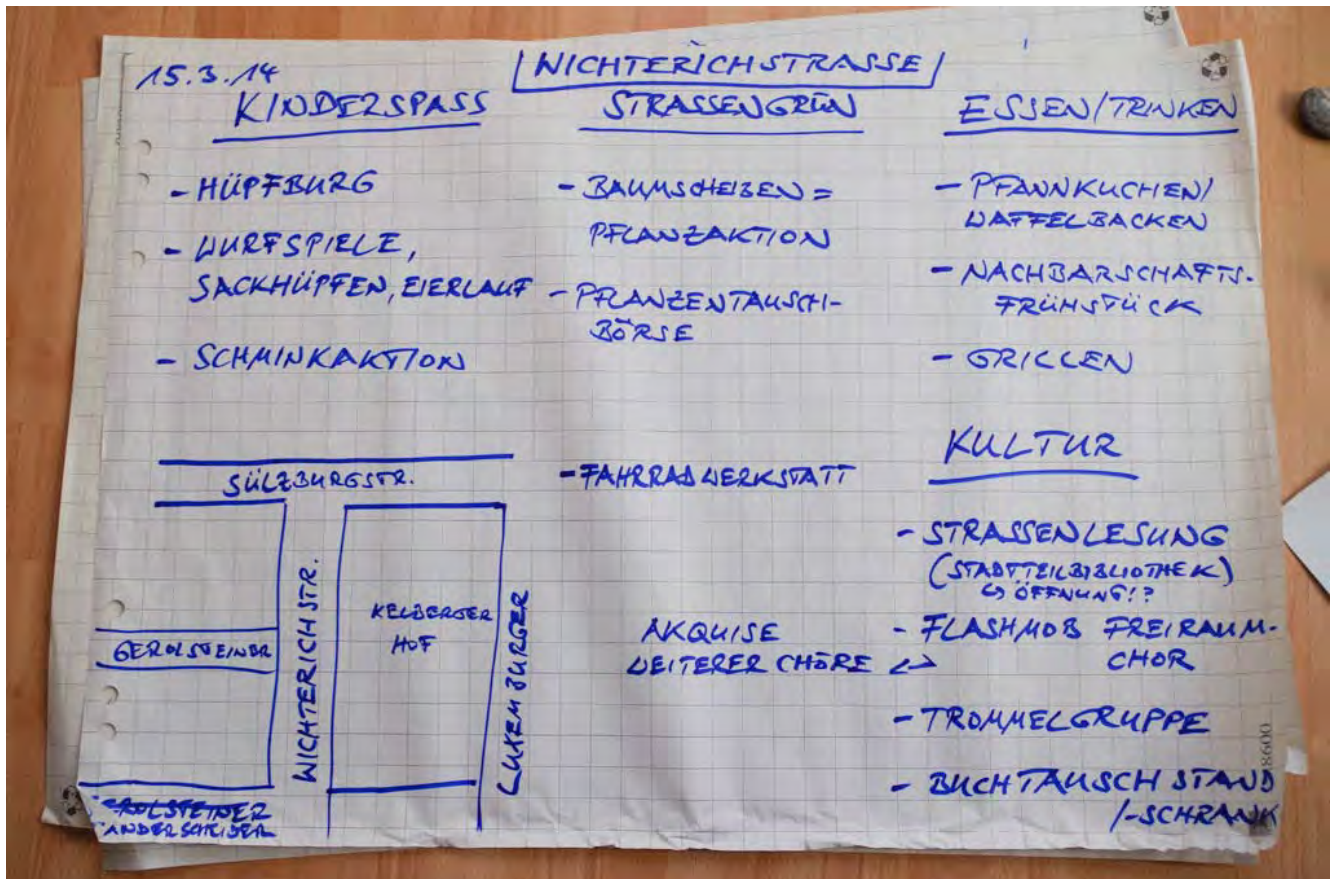 15.3.14
WICHTERICHSTRASSE
KINDERSPASS
- HÜPFBURG
- WURFSPIELE,
SACKHÜPFEN, EIERLAUF
- SCHMINKAKTION
STRASSENGRÜN
- BAUMSCHEIBEN =
PFLANZAKTION
- PFLANZENTAUSCH-
BÖRSE
- FAHRRADWERKSTATT
ESSEN/TRINKEN
- PFANNKUCHEN/
WAFFELBACKEN
- NACHBARSCHAFTS-
FRÜHSTÜCK
- GRILLEN
KULTUR
- STRASSENLESUNG
(STADTTEILBIBLIOTHEK)
↳ ÖFFNUNG!?
- FLASHMOB FREIRAUM-
CHOR
AKQUISE
WEITERER CHÖRE
- TROMMELGRUPPE
- BUCHTAUSCH STAND
/-SCHRANK
SÜLZBURGSTR.
WICHTERICHSTR.
KELBERGER
HOF
LUXEMBURGER
GEROLSTEINER
ROLSTEINER
ANDERSCHEIDER